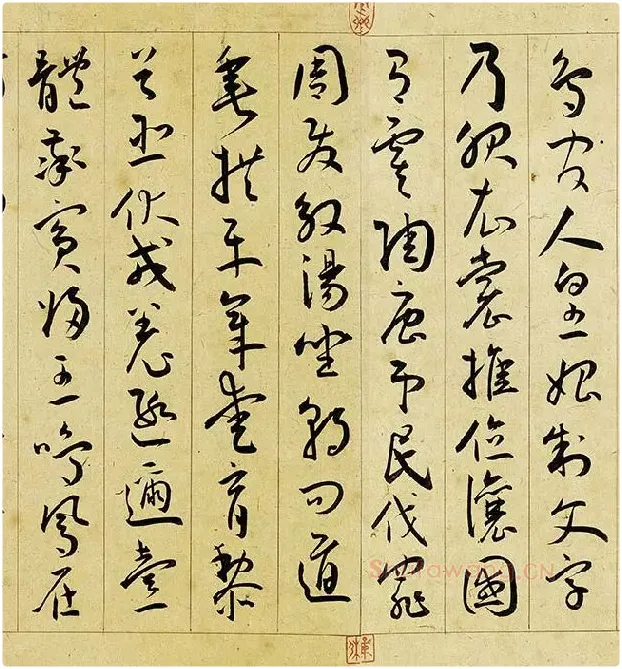 鳥官人皇始制文字
乃服衣裳推位讓國
有虞陶唐弔民伐罪
周發殷湯坐朝問道
垂拱平章愛育黎
首臣伏戎羌遐邇壹
體率賓歸王鳴鳳在